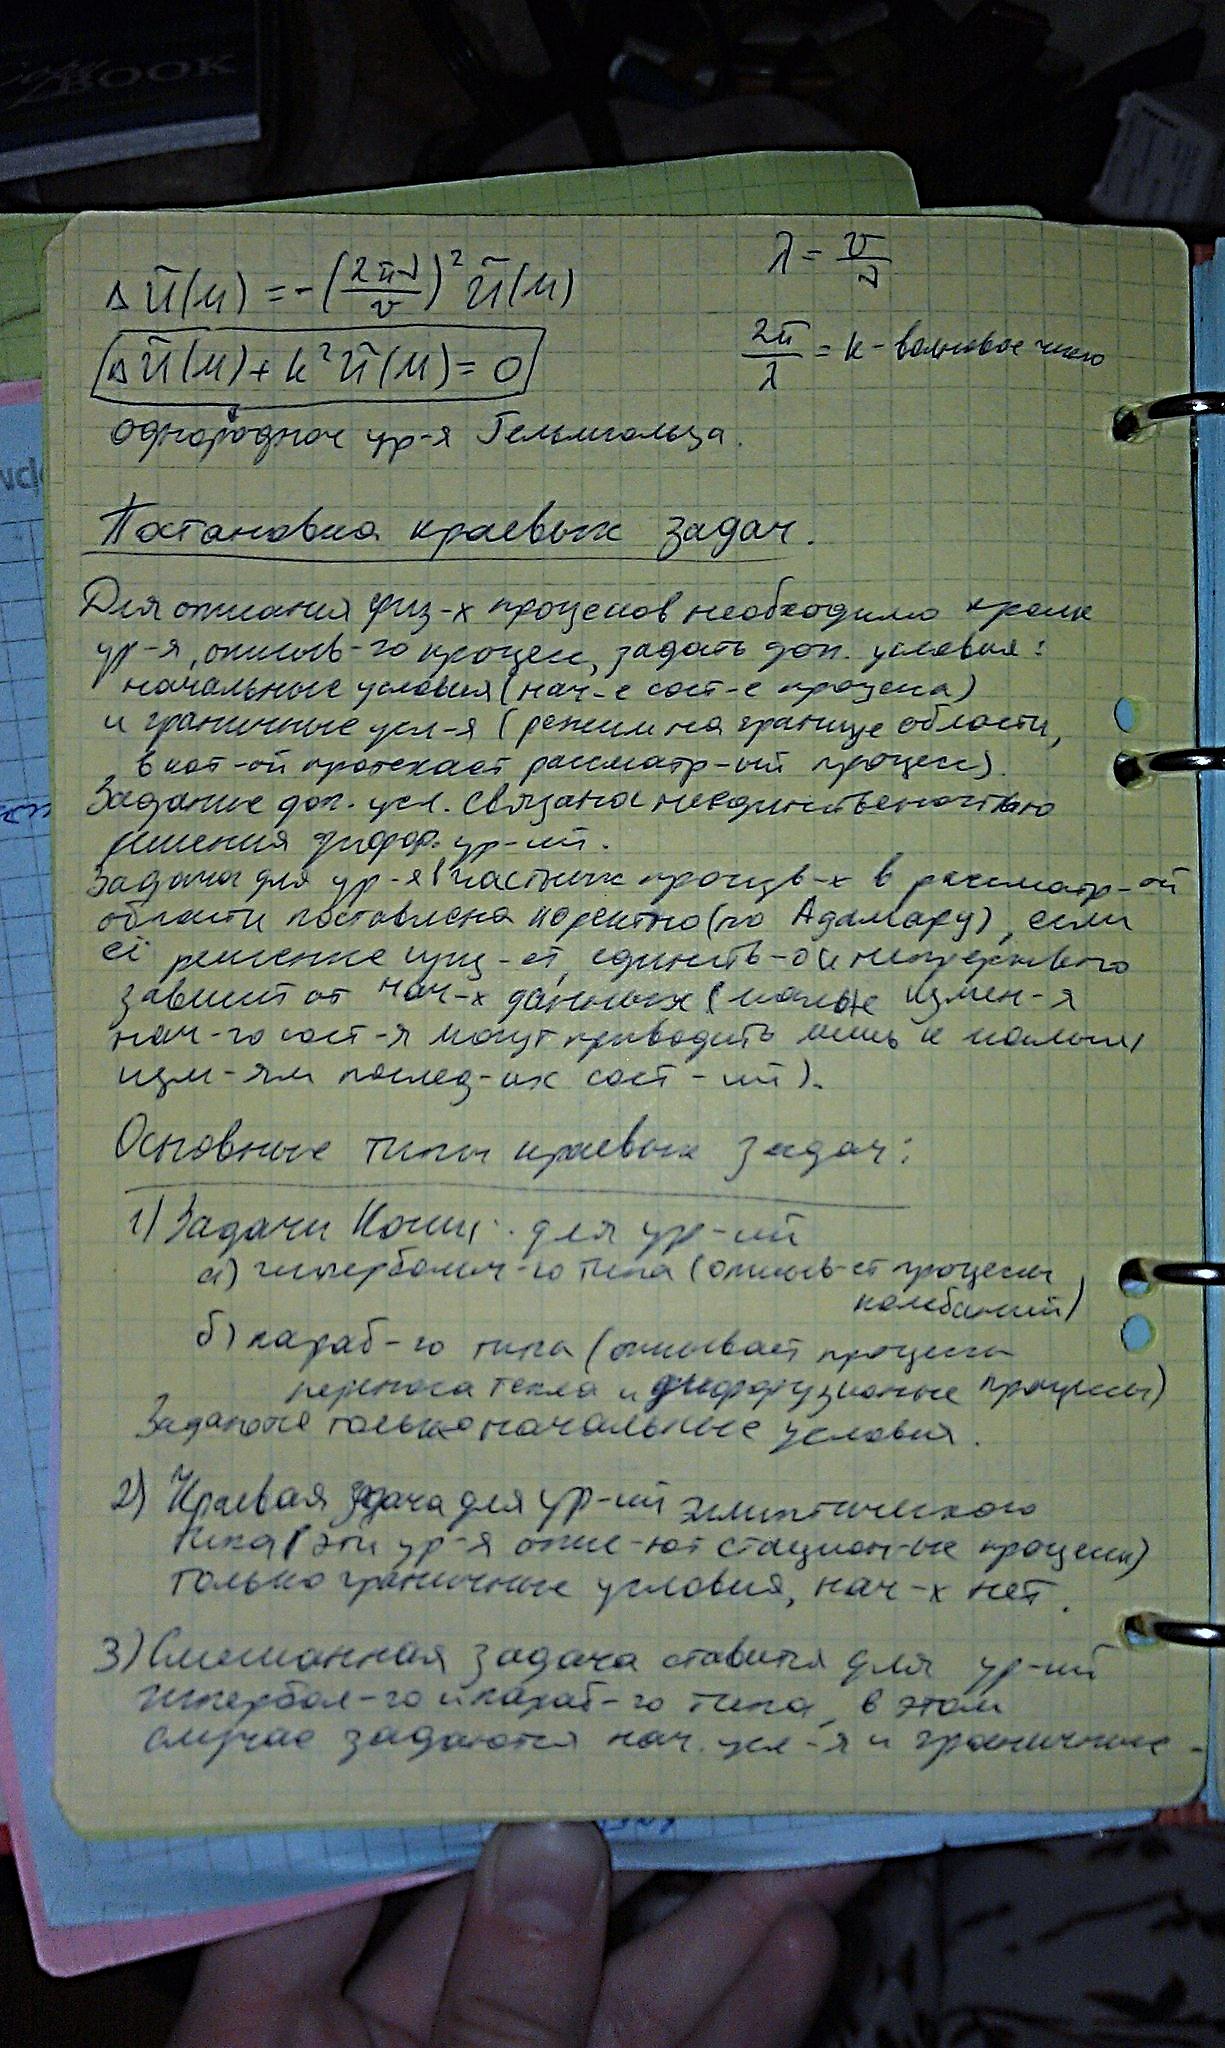 BOOK
Δũ(M) = -(2πν/v)² ũ(M)
λ = v/ν
Δũ(M) + k²ũ(M) = 0
2π/λ = k - волновое число
однородное ур-я Гельмгольца.
Постановка краевых задач.
Для описания физ-х процессов необходимо кроме
ур-я, описыв-го процесс, задать доп. условия:
начальные условия (нач-е сост-е процесса)
и граничные усл-я (режим на границе области,
в кот-ой протекает рассматр-ый процесс).
Задание доп. усл. связана неединственностью
решения дифф. ур-ий.
Задача для ур-я в частных произв-х в рассматр-ой
области поставлена коректно (по Адамару), если
её решение сущ-ет, единств-о и непрерывно
зависит от нач-х данных (малые измен-я
нач-го сост-я могут приводить лишь к малым
изм-ям послед-их сост-ий).
Основные типы краевых задач:
1) Задачи Коши: для ур-ий
а) гиперболич-го типа (описыв-ет процессы
колебаний)
б) параб-го типа (описывает процессы
переноса тепла и диффузионные процессы)
Задаются только начальные условия.
2) Краевая задача для ур-ий элиптического
типа (эти ур-я опис-ют стацион-ые процессы)
только граничные условия, нач-х нет.
3) Смешанная задача ставится для ур-ий
гипербол-го и параб-го типа, в этом
случае задаются нач. усл-я и граничные.